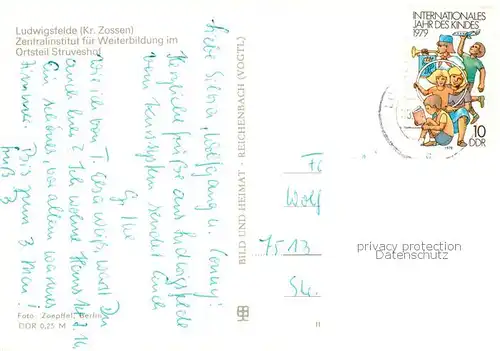 Ludwigsfelde (Kr. Zossen)
Zentralinstitut für Weiterbildung im
Ortsteil Struveshof
Liebe Silvia, Wolfgang u. Conny!
Herzliche Grüße aus Ludwigsfelde
vom Kurssystem sendet Euch
Wie ich von T. Elsa weiß, warst Du
auch hier? Ich wohne Haus
Ein schönes, vor allem warmes
Zimmer. Bis zum 3. Mai!
Foto: Zoepffel, Berlin
DDR 0,25 M
BILD UND HEIMAT · REICHENBACH (VOGTL)
INTERNATIONALES
JAHR DES KINDES
1979
10
DDR
Wolf
7513
privacy protection
Datenschutz